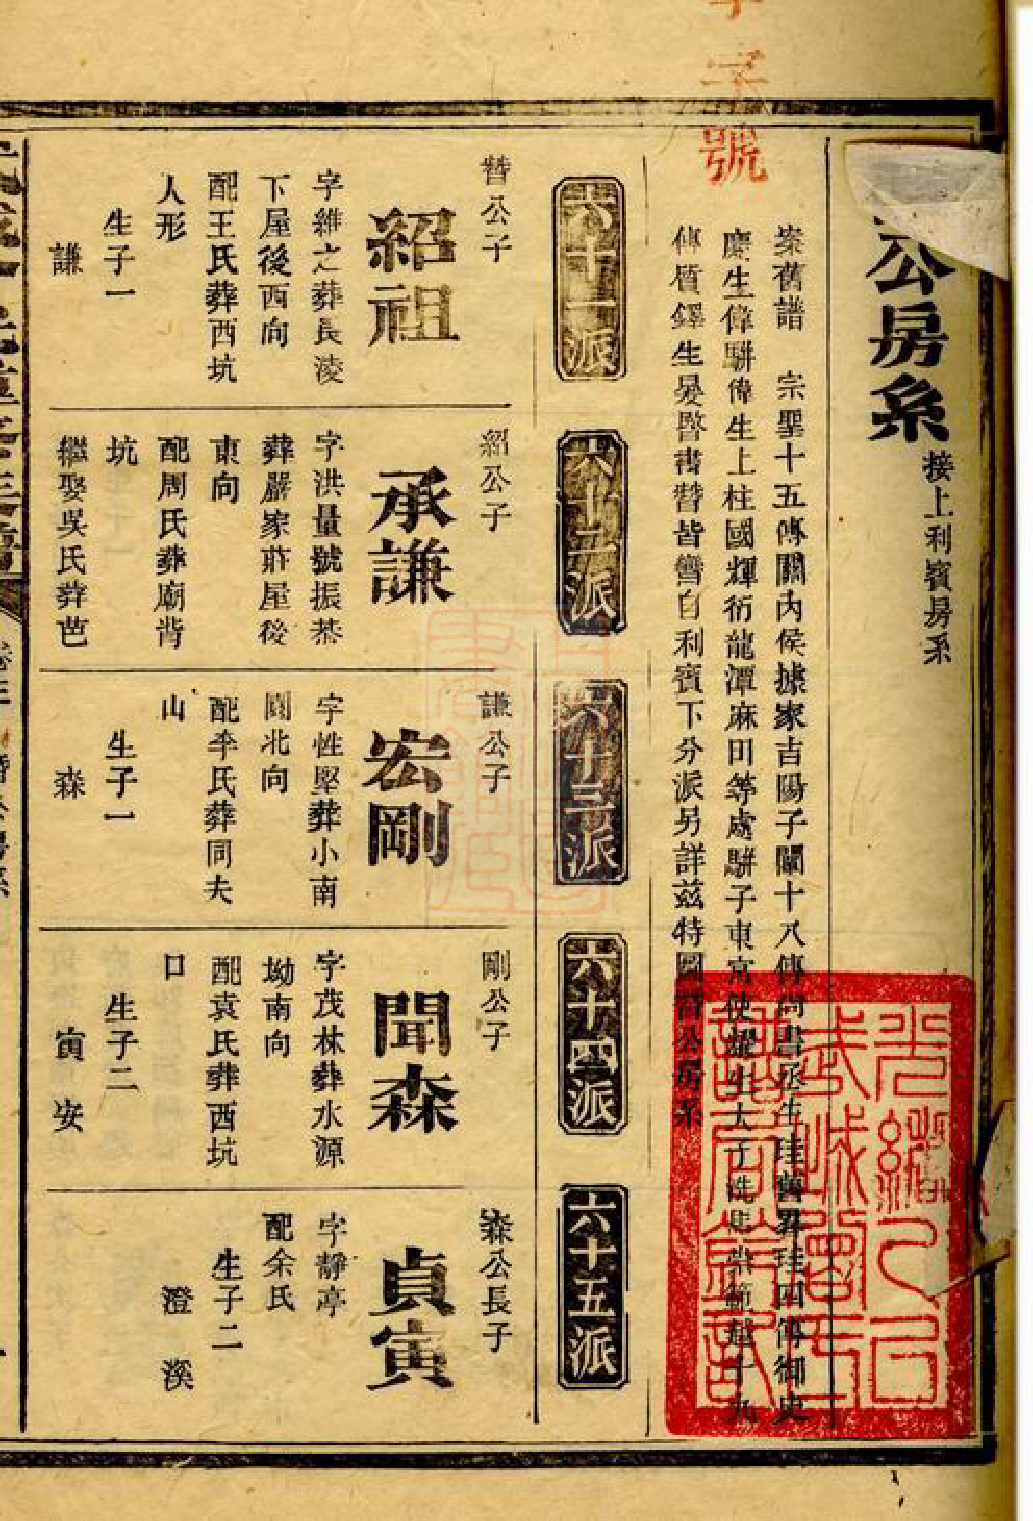 字號
公房系
接上利賓房系
案舊譜 宗聖十五傳關內侯據家吉陽子闡十八傳尚書丞生珪舊昇珪四傳御史
慶生偉駢偉生上柱國輝衍龍潭麻田等處駢子東宮使耀生太子洗馬崇範越十九
傳質鐸生晏暋書朁皆魯自利賓下分派另詳茲特圖朁公房系
六十一派
六十二派
六十三派
六十四派
六十五派
朁公子
紹祖
字維之葬長淩
下屋後西向
配王氏葬西坑
人形
生子一
謙
紹公子
承謙
字洪量號振基
葬嚴家莊屋後
東向
配周氏葬廟背
坑
繼娶吳氏葬芭
謙公子
宏剛
字性堅葬小南
園北向
配李氏葬同夫
山
生子一
森
剛公子
聞森
字茂林葬水源
坳南向
配袁氏葬西坑
口
生子二
寅 安
森公長子
貞寅
字靜亭
配余氏
生子二
澄 溪
光緒乙巳
武城曾氏